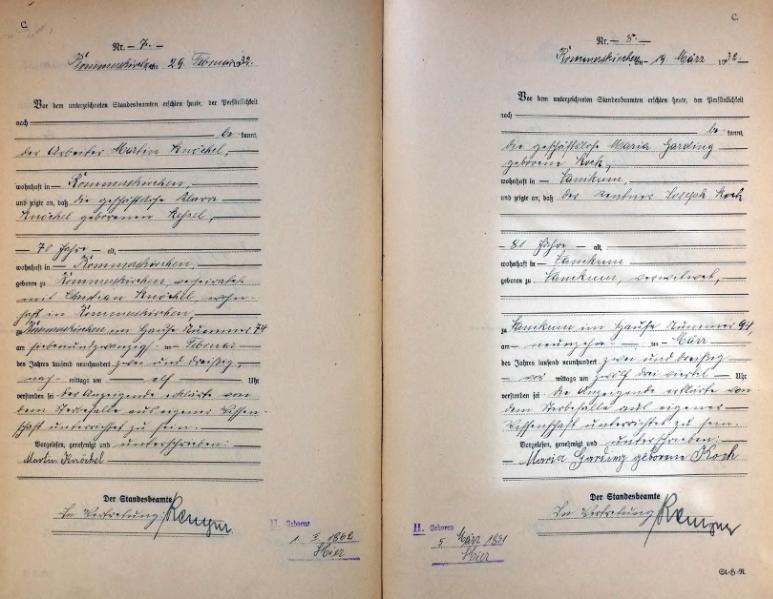 C.
Nr. 7.
Rommerskirchen 29. Februar 32.
Vor dem unterzeichneten Standesbeamten erschien heute, der Persönlichkeit
nach
be kannt,
der Arbeiter Martin Knöchel,
wohnhaft in Rommerskirchen,
und zeigte an, daß die geschäftslose Klara
Knöchel geborenen
70 Jahre alt,
wohnhaft in Rommerskirchen,
geboren zu Rommerskirchen, verheiratet
mit Christian Knöchel, wohn-
haft in Rommerskirchen,
zu Rommerskirchen im Hause Nummer 74
am siebenundzwanzig ten Februar
des Jahres tausend neunhundert zwei und dreißig
nach mittags um elf Uhr
verstorben sei. Der Anzeigende erklärte von
dem Sterbefalle aus eigener Wissen-
schaft unterrichtet zu sein.
Vorgelesen, genehmigt und unterschrieben:
Martin Knöchel
Der Standesbeamte
In Vertretung
II. Geboren
1. 3. 1862
Hier
C.
Nr. 8.
Rommerskirchen am 19 März 1932
Vor dem unterzeichneten Standesbeamten erschien heute, der Persönlichkeit
nach
be kannt,
die geschäftslose Maria Harding
geborene Koch,
wohnhaft in
und zeigte an, daß der Rentner Joseph Koch
80 Jahre alt,
wohnhaft in
geboren zu verwitwet,
zu im Hause Nummer 94
am neunzehn ten März
des Jahres tausend neunhundert zwei und dreißig
vor mittags um zwölf drei viertel Uhr
verstorben sei. Die Anzeigende erklärte von
dem Sterbefalle aus eigener
Wissenschaft unterrichtet zu sein.
Vorgelesen, genehmigt und unterschrieben:
Maria Harding geborene Koch
Der Standesbeamte
In Vertretung
II. Geboren
5 März
Hier
St.-H.-R.